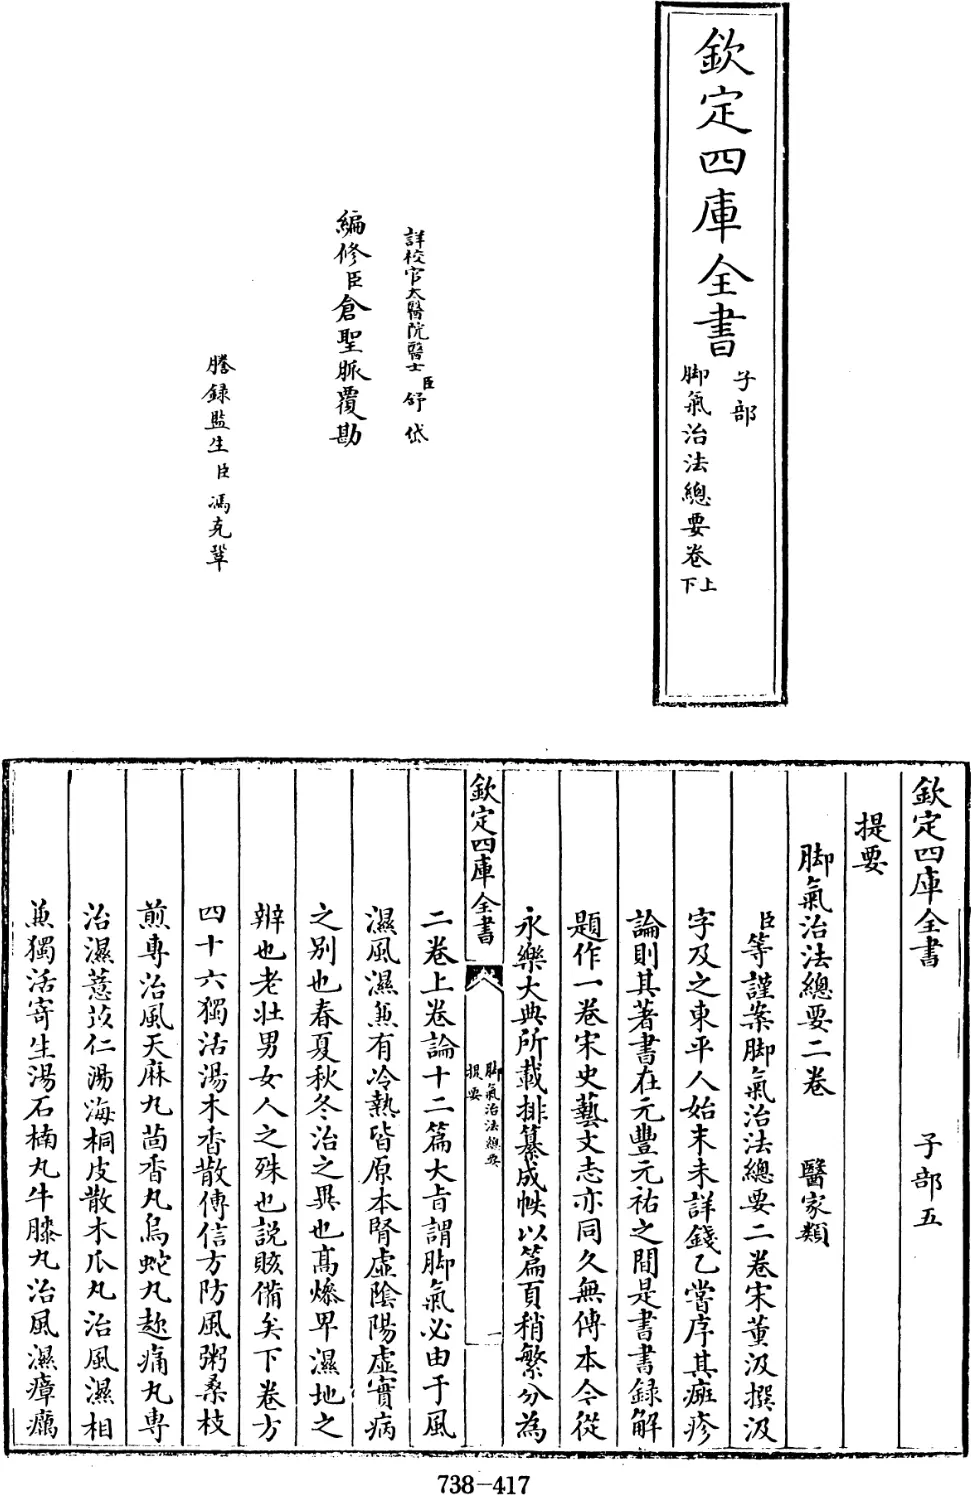 欽定四庫全書
子部
脚氣治法總要卷上下
詳校官太醫院醫士臣舒岱
編修臣倉聖脈覆勘
謄錄監生臣馮克鞏
欽定四庫全書 子部五
提要
脚氣治法總要二卷 醫家類
臣等謹案脚氣治法總要二卷宋董汲撰汲
字及之東平人始末未詳錢乙嘗序其瘢疹
論則其著書在元豐元祐之間是書書録解
題作一卷宋史藝文志亦同久無傳本今從
永樂大典所載排纂成帙以篇頁稍繁分為
欽定四庫全書 脚氣治法總要 提要 一
二卷上卷論十二篇大旨謂脚氣必由于風
濕風濕兼有冷熱皆原本腎虛陰陽虛實病
之别也春夏秋冬治之異也髙燥卑濕地之
辨也老壯男女人之殊也説賅備矣下卷方
四十六獨活湯木香散傳信方防風粥桑枝
煎專治風天麻丸茴香丸烏蛇丸趂痛丸專
治濕薏苡仁湯海桐皮散木瓜丸治風濕相
兼獨活寄生湯石楠丸牛膝丸治風濕瘴癘
738-417